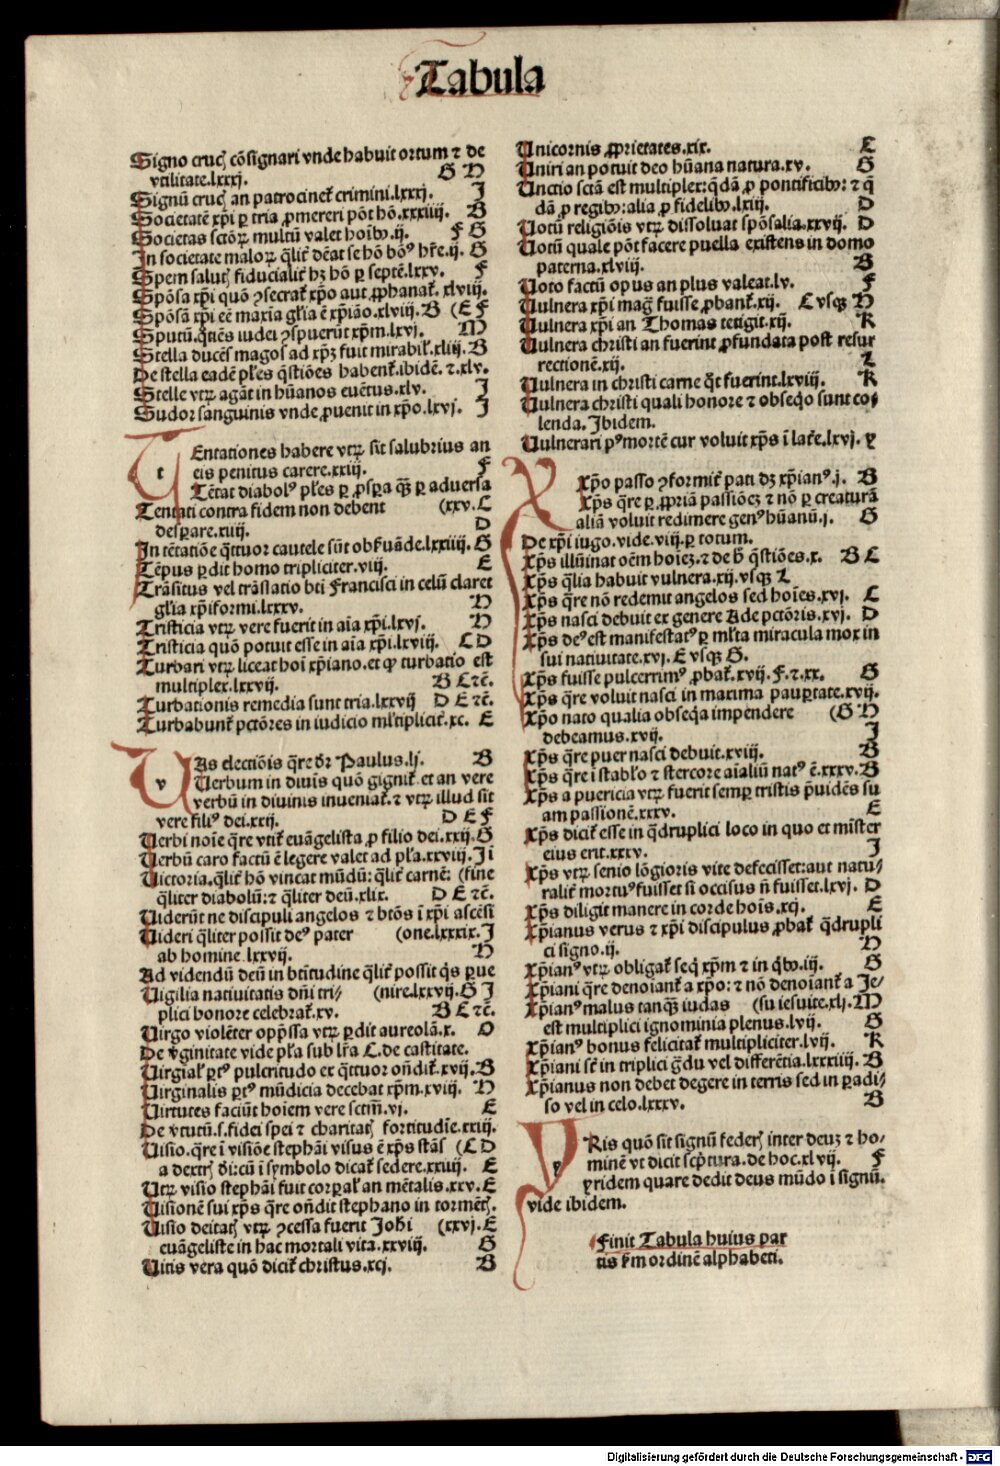 Tabula
Signo cruc̃ cõsignari vnde habuit ortum ⁊ de
vtilitate.lxxxj. G H
Signũ cruc̃ an patrocinet̃ crimini.lxxxj. J
Societatẽ xp̃i ꝑ tria ꝓmereri põt hõ.xxxiiij. B
Societas sctõꝝ multũ valet hoĩbꝰ.ij. F G
In societate maloꝝ q̃lit̃ dẽat se hõ bõꝰ hr̃e.ij. G
Spem salut̃ fiducialit̃ hꝫ hõ ꝑ septẽ.lxxv. F
Spõsa xp̃i quõ ꝯsecrat̃ xp̃o aut ꝓphanat̃.xlviij.
Spõsã xp̃i eẽ maxĩa gl̃ia ẽ xp̃ião.xlviij.B (E F
Sputũ.q̃tiẽs iudei ꝯspuerũt xp̃m.lxvj. M
Stella ducẽs magos ad xp̃ꝫ fuit mirabil̃.xliij.B
De stella eadẽ pl̃es q̃stiões habent̃.ibidẽ.⁊.xlv.
Stelle vtꝝ agãt in hũanos euẽtus.xlv. J
Sudor sanguinis vnde ꝓuenit in xp̃o.lxvj. J
TEntationes habere vtꝝ sit salubrius an
t eis penitus carere.xxiij. F
Tẽtat diabolꝰ pl̃es ꝑ ꝓsꝑa q̃ꝫ ꝑ aduersa
Tentati contra fidem non debent (xxv.C
desꝑare.xiiij. D
In tẽtatiõe q̃ttuor cautele sũt obẽuãde.lxxiiij.G
Tẽpus ꝑdit homo tripliciter.viij. E
Trãsitus vel trãslatio bt̃i Francisci in celũ claret
gl̃ia xp̃iformi.lxxxv. H
Tristicia vtꝝ vere fuerit in aĩa xp̃i.lxvj. H
Tristicia quõ potuit esse in aĩa xp̃i.lxviij. C D
Turbari vtꝝ liceat hoĩ xp̃iano.et ꝙ turbatio est
multiplex.lxxvij. B C ⁊c̃.
Turbationis remedia sunt tria.lxxvij D E ⁊c̃.
Turbabunt̃ pctõres in iudicio ml̃tiplicit̃.xc. E
VAs electiõis q̃re dr̃ Paulus.lj. B
v Verbum in diuĩs quõ gignit̃ et an vere
verbũ in diuinis inueniat̃.⁊ vtꝝ illud sit
vere filiꝰ dei.xxij. D E F
Verbi noĩe q̃re vtit̃ euãgelista ꝓ filio dei.xxij.G
Verbũ caro factũ ẽ legere valet ad pl̃a.xxviij.J ĩ
Victoria.q̃lit̃ hõ vincat mũdũ:q̃lit̃ carnẽ: (fine
q̃liter diabolũ:⁊ q̃liter deũ.xlix. D E ⁊c̃.
Viderũt ne discipuli angelos ⁊ btõs ĩ xp̃i ascẽsi
Videri q̃liter possit deꝰ pater (one.lxxxix.J
ab homine.lxxvij. H
Ad videndũ deũ in bt̃itudine q̃lit̃ possit q̃s ꝑue
Vigilia natiuitatis dñi tri⸗ (nire.lxxvij.G J
plici honore celebrat̃.xv. B C ⁊c̃.
Virgo violẽter opp̃ssa vtꝝ ꝑdit aureolã.x. O
De ṽginitate vide pl̃a sub lr̃a C.de castitate.
Virgial̃ ꝑtꝰ pulcritudo ex q̃ttuor oñdit̃.xvij.B
Virginalis ꝑtꝰ mũdicia decebat xp̃m.xviij. H
Virtutes faciũt hoĩem vere sctm̃.vj. E
De ṽtutũ.s.fidei spei ⁊ charitat̃ fortitudĩe.xxiij.
Visio.q̃re ĩ visiõe stephãi visus ẽ xp̃s stãs (C D
a dextr̃ dei:cũ ĩ symbolo dicat̃ sedere.xxiiij. E
Vtꝝ visio stephãi fuit corꝑal̃ an mẽtalis.xxv.E
Visionẽ sui xp̃s q̃re oñdit stephano in tormẽt̃.
Visio deitat̃ vtꝝ ꝯcessa fuerit Joh̃i (xxvj.E
euãgeliste in hac mortali vita.xxviij. G
Vitis vera quõ dicit̃ christus.xcj. B
Vnicornis ꝓprietates.xix. C
Vniri an potuit deo hũana natura.xv. G
Vnctio sctã est multiplex:q̃dã ꝓ pontificibꝰ:⁊ q̃
dã ꝓ regibꝰ:alia ꝓ fidelibꝰ.lxiij. D
Votũ religiõis vtꝝ dissoluat spõsalia.xxvij. D
Votũ quale põt facere puella existens in domo
paterna.xlviij. B
Voto factũ opus an plus valeat.lv. F
Vulnera xp̃i mag̃ fuisse ꝓbant̃.xij. C vsqꝫ H
Vulnera xp̃i an Thomas tetigit.xij. K
Vulnera christi an fuerint ꝓfundata post resur
rectionẽ.xij. L
Vulnera in christi carne q̃t fuerint.lxviij. K
Vulnera christi quali honore ⁊ obseq̃o sunt co⸗
lenda.Ibidem.
Vulnerari pꝰmortẽ cur voluit xp̃s ĩ lat̃e.lxvj. y
Xp̃o passo ꝯformit̃ pati dꝫ xp̃ianꝰ.j. B
Xp̃s q̃re ꝑ ꝓpriã passiõeꝫ ⁊ nõ ꝑ creaturã
aliã voluit redimere genꝰ hũanũ.j. G
De xp̃i iugo.vide.viij.ꝑ totum.
Xp̃s illũinat oẽm hoĩeꝫ.⁊ de h̃ q̃stiões.x. B C
Xp̃s q̃lia habuit vulnera.xij.vsqꝫ L
Xp̃s q̃re nõ redemit angelos sed hoĩes.xvj. C
Xp̃s nasci debuit ex genere Ade pctõris.xvj. D
Xp̃s deꝰ est manifestatꝰ ꝑ ml̃ta miracula mox in
sui natiuitate.xvj.E vsqꝫ G.
Xp̃s fuisse pulcerrimꝰ ꝓbat̃.xvij.F.⁊.xx. G
Xp̃s q̃re voluit nasci in maxima pauꝑtate.xvij.
Xp̃o nato qualia obseq̃a impendere (G H
debeamus.xvij. J
Xp̃s q̃re puer nasci debuit.xviij. B
Xp̃s q̃re ĩ stabl̃o ⁊ stercore aĩaliũ natꝰ ẽ.xxxv.B
Xp̃s a puericia vtꝝ fuerit semꝑ tristis p̃uidẽs su
am passionẽ.xxxv. E
Xp̃s dicit̃ esse in q̃druplici loco in quo et mĩster
eius erit.xxxv. J
Xp̃s vtꝝ senio lõgioris vite defecisset:aut natu⸗
ralit̃ mortuꝰfuisset si occisus ñ fuisset.lxvj. D
Xp̃s diligit manere in corde hoĩs.xcj. E
Xp̃ianus verus ⁊ xp̃i discipulus ꝓbat̃ q̃drupli
ci signo.ij. H
Xp̃ianꝰ vtꝝ obligat̃ seq̃ xp̃m ⁊ in q̃bꝰ.iij. G
Xp̃iani q̃re denoĩant̃ a xp̃o:⁊ nõ denoĩant̃ a Je⸗
Xp̃ianꝰ malus tanq̃ꝫ iudas (su iesuite.xlj.M
est multiplici ignominia plenus.lvij. G
Xp̃ianꝰ bonus felicitat̃ multipliciter.lvij. K
Xp̃iani st̃ in triplici g̃du vel differẽtia.lxxxiiij. B
Xp̃ianus non debet degere in terris sed in ꝑadi⸗
so vel in celo.lxxxv. B
YRis quõ sit signũ feder̃ inter deuꝫ ⁊ ho⸗
y minẽ vt dicit scp̃tura.de hoc.xlvij. F
yridem quare dedit deus mũdo ĩ signũ.
vide ibidem.
Finit Tabula huius par
tis ẽm ordinẽ alphabeti.
Digitalisierung gefördert durch die Deutsche Forschungsgemeinschaft - DFG